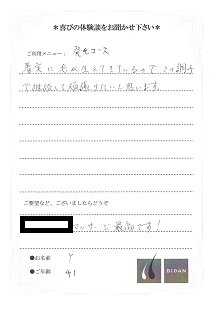 ＊喜びの体験談をお聞かせ下さい＊
ご利用メニュー： 発毛コース
着実に毛が生えてきているので この調子
で継続して頑張りたいと思います
ご要望など、ございましたらどうぞ
マッサージ最高です！
●お名前 Y
●ご年齢 41
BIDAN